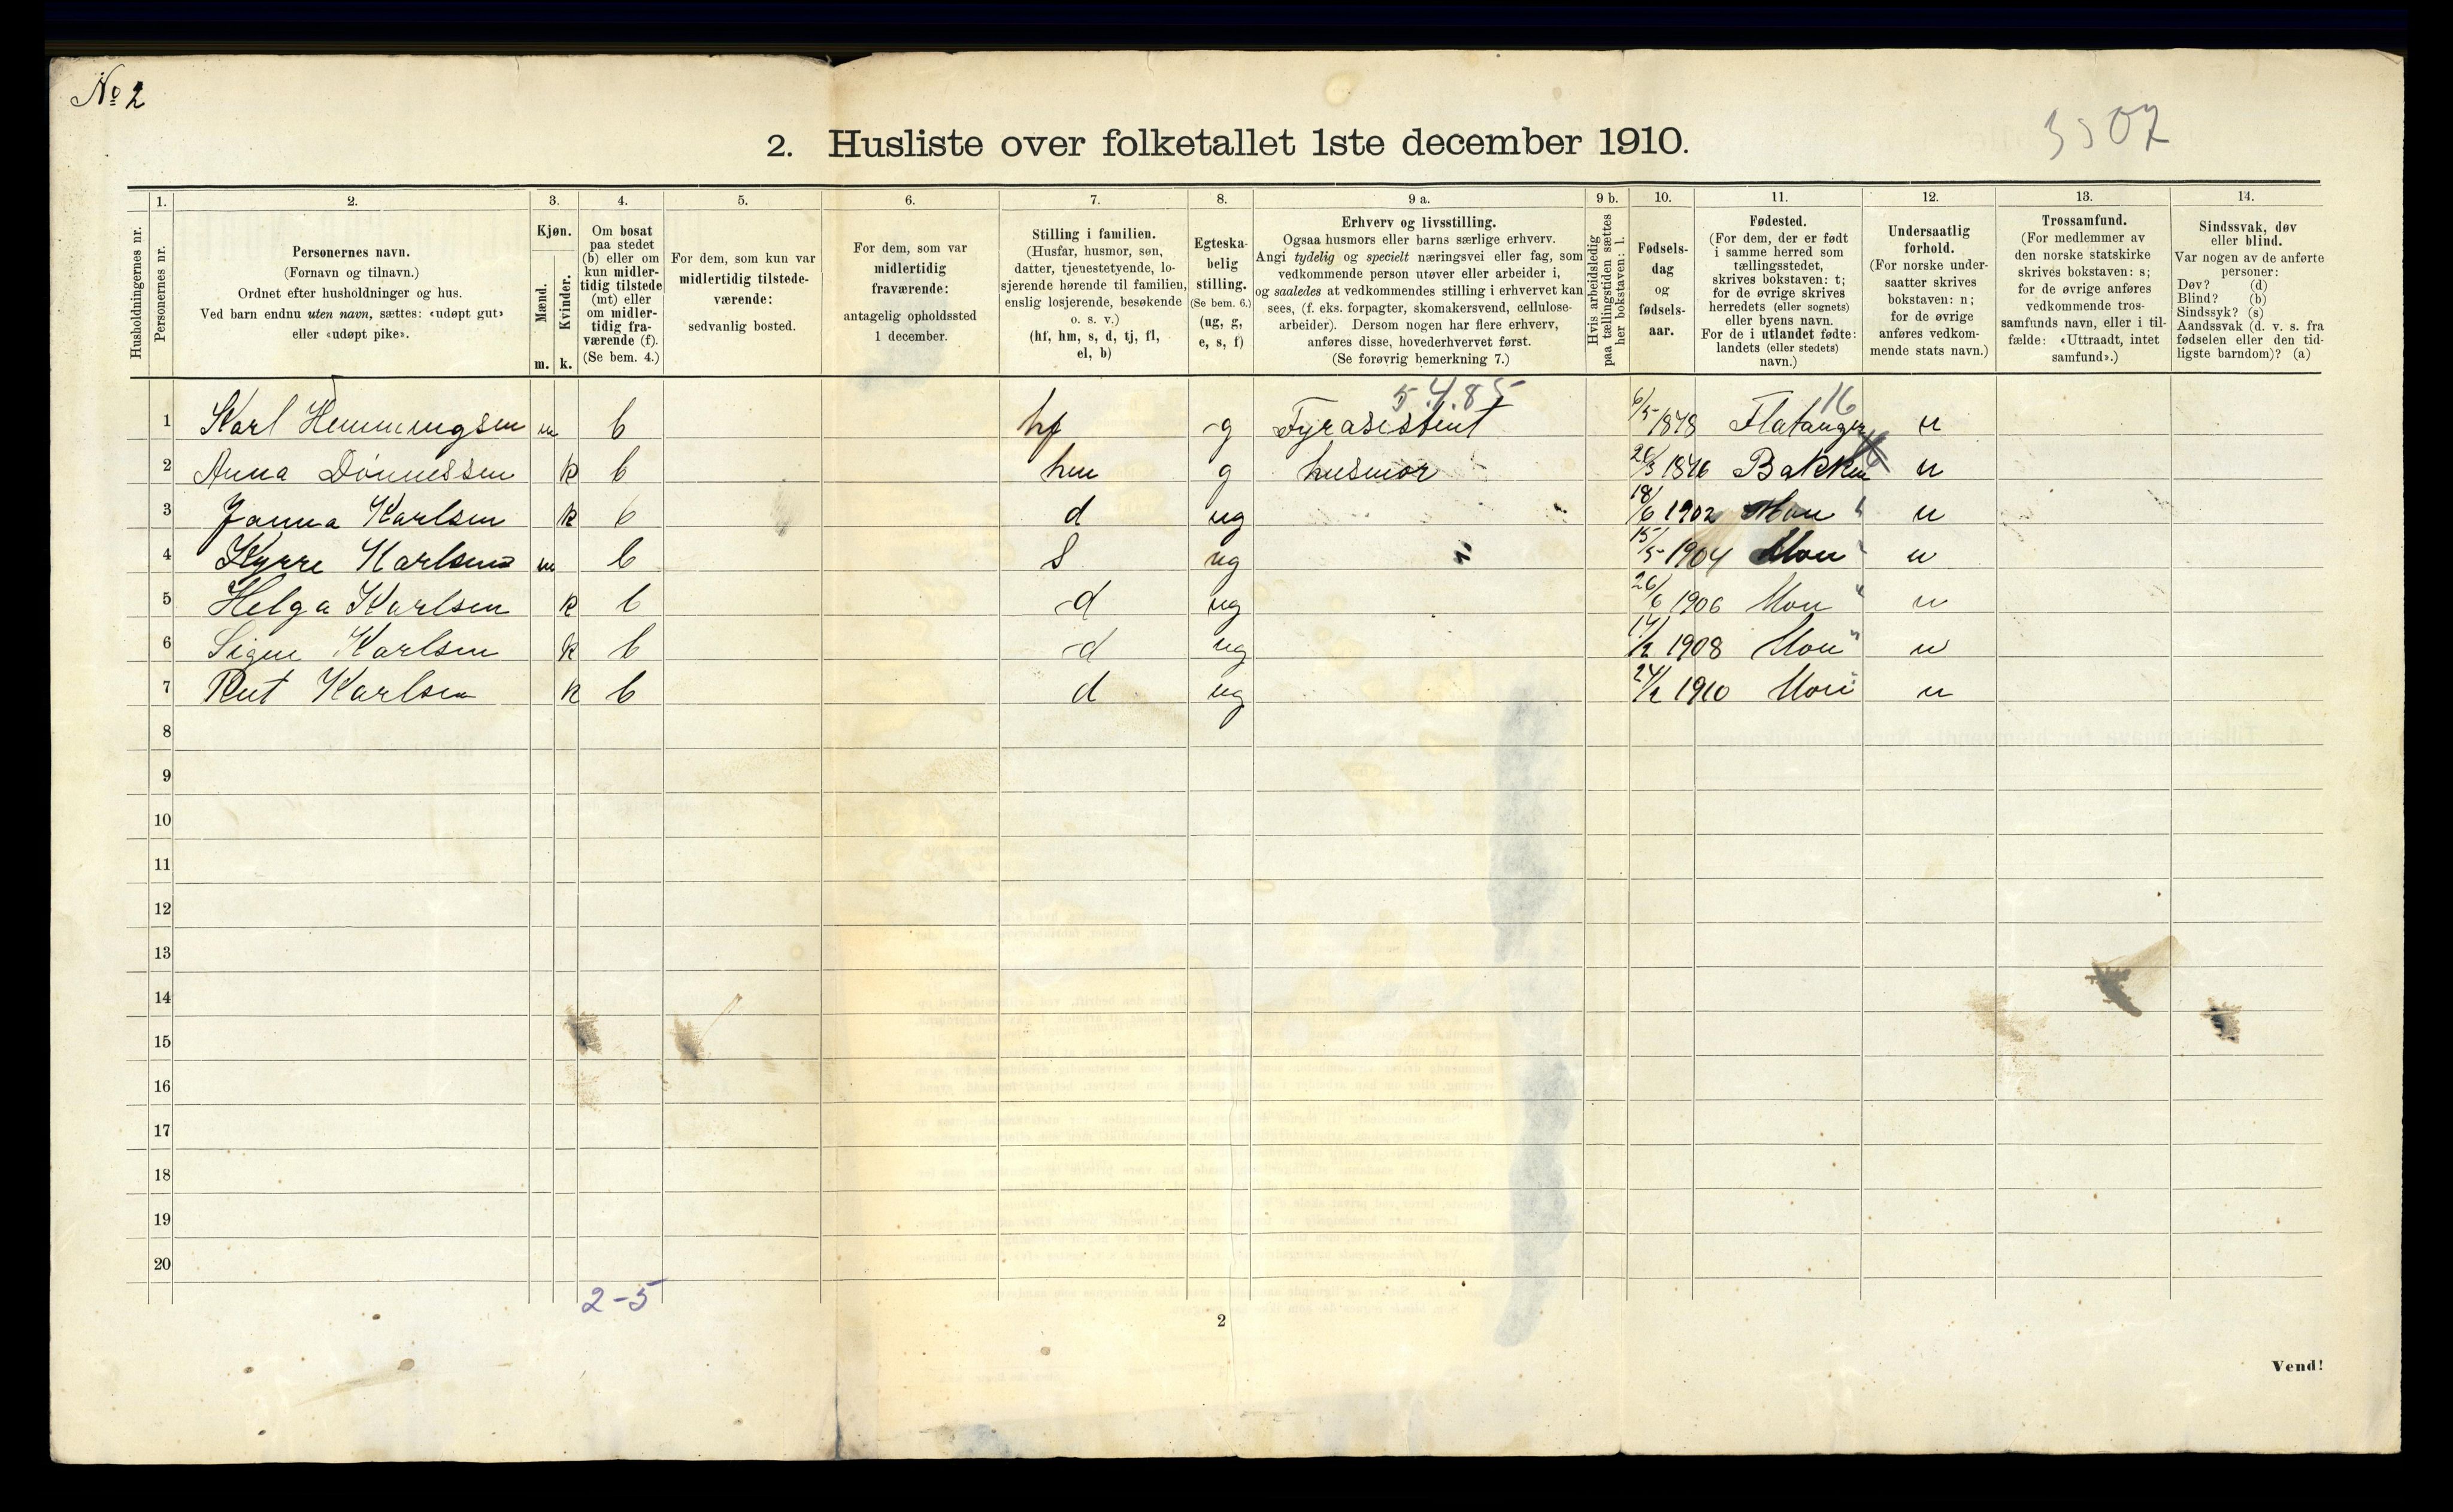 № 2
3507
2. Husliste over folketallet 1ste december 1910.
Husholdningernes nr.
1. Personernes nr.
2. Personernes navn.
(Fornavn og tilnavn.)
Ordnet efter husholdninger og hus.
Ved barn endnu uten navn, sættes: «udøpt gut»
eller «udøpt pike».
3. Kjøn.
Mænd. Kvinder.
m. k.
4. Om bosat
paa stedet
(b) eller om
kun midler-
tidig tilstede
(mt) eller
om midler-
tidig fra-
værende (f).
(Se bem. 4.)
5. For dem, som kun var
midlertidig tilstede-
værende:
sedvanlig bosted.
6. For dem, som var
midlertidig
fraværende:
antagelig opholdssted
1 december.
7. Stilling i familien.
(Husfar, husmor, søn,
datter, tjenestetyende, lo-
sjerende hørende til familien,
enslig losjerende, besøkende
o. s. v.)
(hf, hm, s, d, tj, fl,
el, b)
8. Egteska-
belig
stilling.
(Se bem. 6.)
(ug, g,
e, s, f)
9 a. Erhverv og livsstilling.
Ogsaa husmors eller barns særlige erhverv.
Angi tydelig og specielt næringsvei eller fag, som
vedkommende person utøver eller arbeider i,
og saaledes at vedkommendes stilling i erhvervet kan
sees, (f. eks. forpagter, skomakersvend, cellulose-
arbeider). Dersom nogen har flere erhverv,
anføres disse, hovederhvervet først.
(Se forøvrig bemerkning 7.)
9 b. Hvis arbeidsledig
paa tællingstiden sættes
her bokstaven: l.
10. Fødsels-
dag
og
fødsels-
aar.
11. Fødested.
(For dem, der er født
i samme herred som
tællingsstedet,
skrives bokstaven: t;
for de øvrige skrives
herredets (eller sognets)
eller byens navn.
For de i utlandet fødte:
landets (eller stedets)
navn.)
12. Undersaatlig
forhold.
(For norske under-
saatter skrives
bokstaven: n;
for de øvrige
anføres vedkom-
mende stats navn.)
13. Trossamfund.
(For medlemmer av
den norske statskirke
skrives bokstaven: s;
for de øvrige anføres
vedkommende tros-
samfunds navn, eller i til-
fælde: «Uttraadt, intet
samfund».)
14. Sindssvak, døv
eller blind.
Var nogen av de anførte
personer:
Døv? (d)
Blind? (b)
Sindssyk? (s)
Aandssvak (d. v. s. fra
fødselen eller den tid-
ligste barndom)? (a)
5.4.85 16
1 Karl Hemmingsen m b hf g Fyrasistent 6/5 1878 Flatanger n
2 Anna Dønnessen k b hm g husmor 26/3 Bakken n
3 Janna Karlsen k b d ug 18/6 1902 n
4 Kyrre Karlsen m b s ug 15/5 1904 n
5 Helga Karlsen k b d ug 26/6 1906 n
6 Signe Karlsen k b d ug 1908 n
7 Rut Karlsen k b d ug 24/2 1910 n
8
9
10
11
12
13
14
15
16
17
18
19
20
2-5
2
Vend!